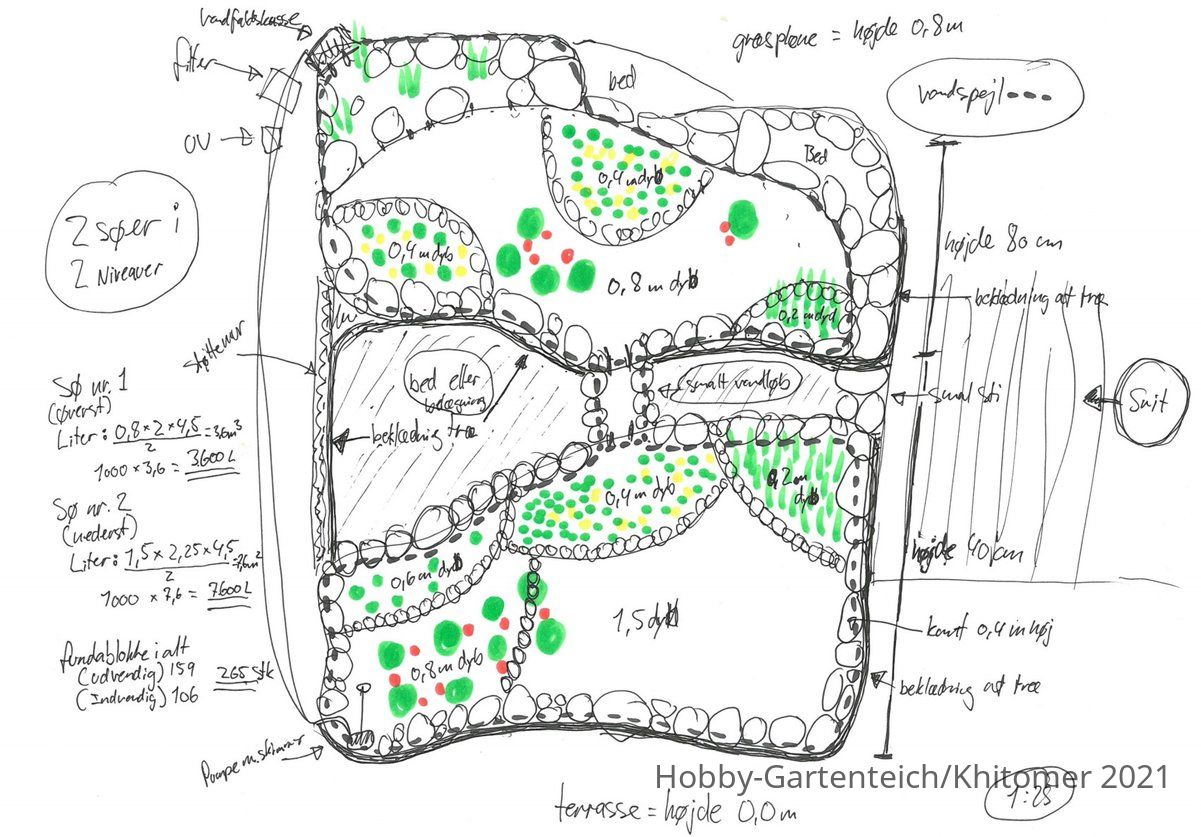 vandfaldskasse
filter
UV
græsplæne = højde 0,8m
bed
vandspejl
Bed
2 søer i
2 Niveauer
0,4 m dyb
0,4 m dyb
0,8 m dyb
0,2 m dyb
højde 80 cm
beklædning af træ
støttemur
bed eller
belægning
smalt vandløb
smal sti
Snit
beklædning træ
Sø nr. 1
(øverst)
Liter: 0,8 x 2 x 4,5 = 3,6m³
2
1000 x 3,6 = 3600 L
0,4 m dyb
0,2 m
dyb
Sø nr. 2
(nederst)
Liter: 1,5 x 2,25 x 4,5 = 7,6m²
2
1000 x 7,6 = 7600 L
0,6 m dyb
højde 40 cm
1,5 dyb
kant 0,4 m høj
fundablokke i alt
(udvendig) 159
(Indvendig) 106
265 stk
0,8 m dyb
beklædning af træ
Pumpe m. skimmer
Hobby-Gartenteich/Khitomer 2021
1:25
terrasse = højde 0,0 m